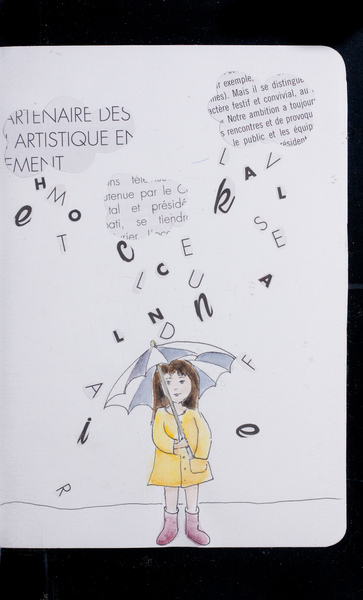 ARTENAIRE DES
ARTISTIQUE EN
EMENT
r exemple,
nes). Mais il se distingue
actère festif et convivial, au
Notre ambition a toujour
s rencontres et de provoqu
le public et les équip
ésident
ns
utenue par le C
tal et présidé
ati, se tiendr
H
M
e
O
T
L
k
A
V
L
S
E
C
E
L
C
U
n
A
L
N
D
F
A
i
e
R